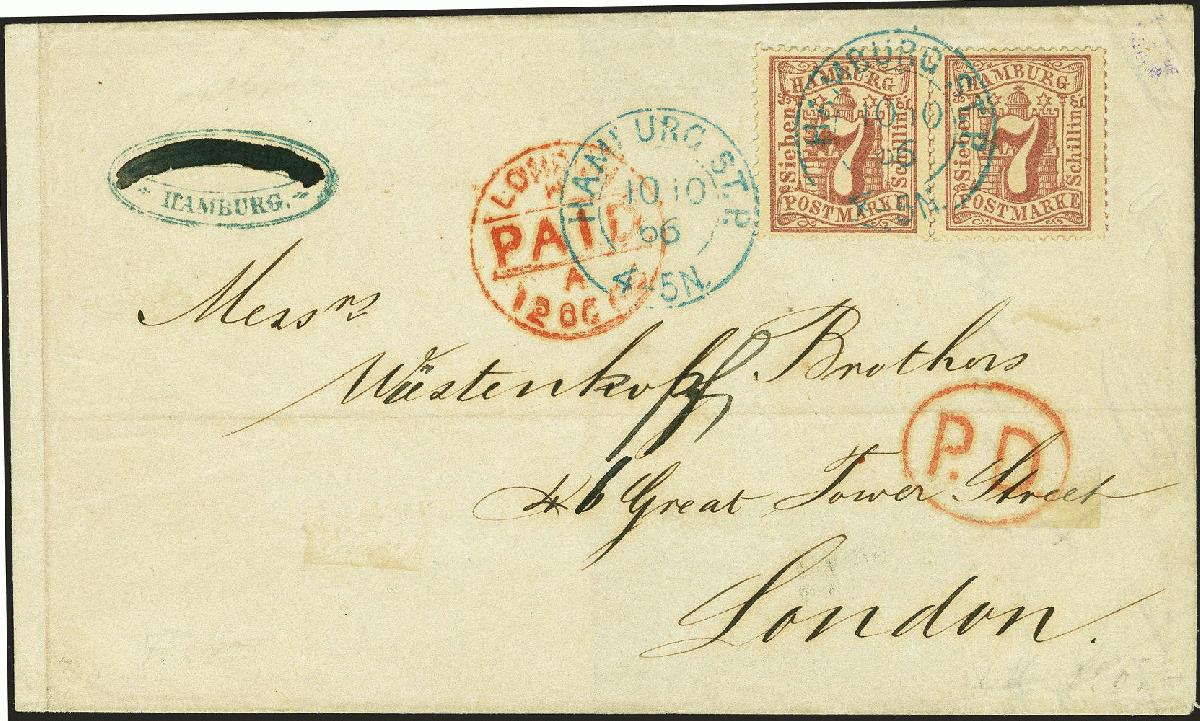 HAMBURG.
HAMBURG
Sieben
7
Schilling
POSTMARKE
HAMBURG
Sieben
7
Schilling
POSTMARKE
HAMBURG ST.P.
10 10
66
5N.
HAMBURG ST.P.
10 10
66
4-5N.
PAID
A
12 OC
P.D
Messrs
Wüstenhoff Brothers
Great Tower Street
London.